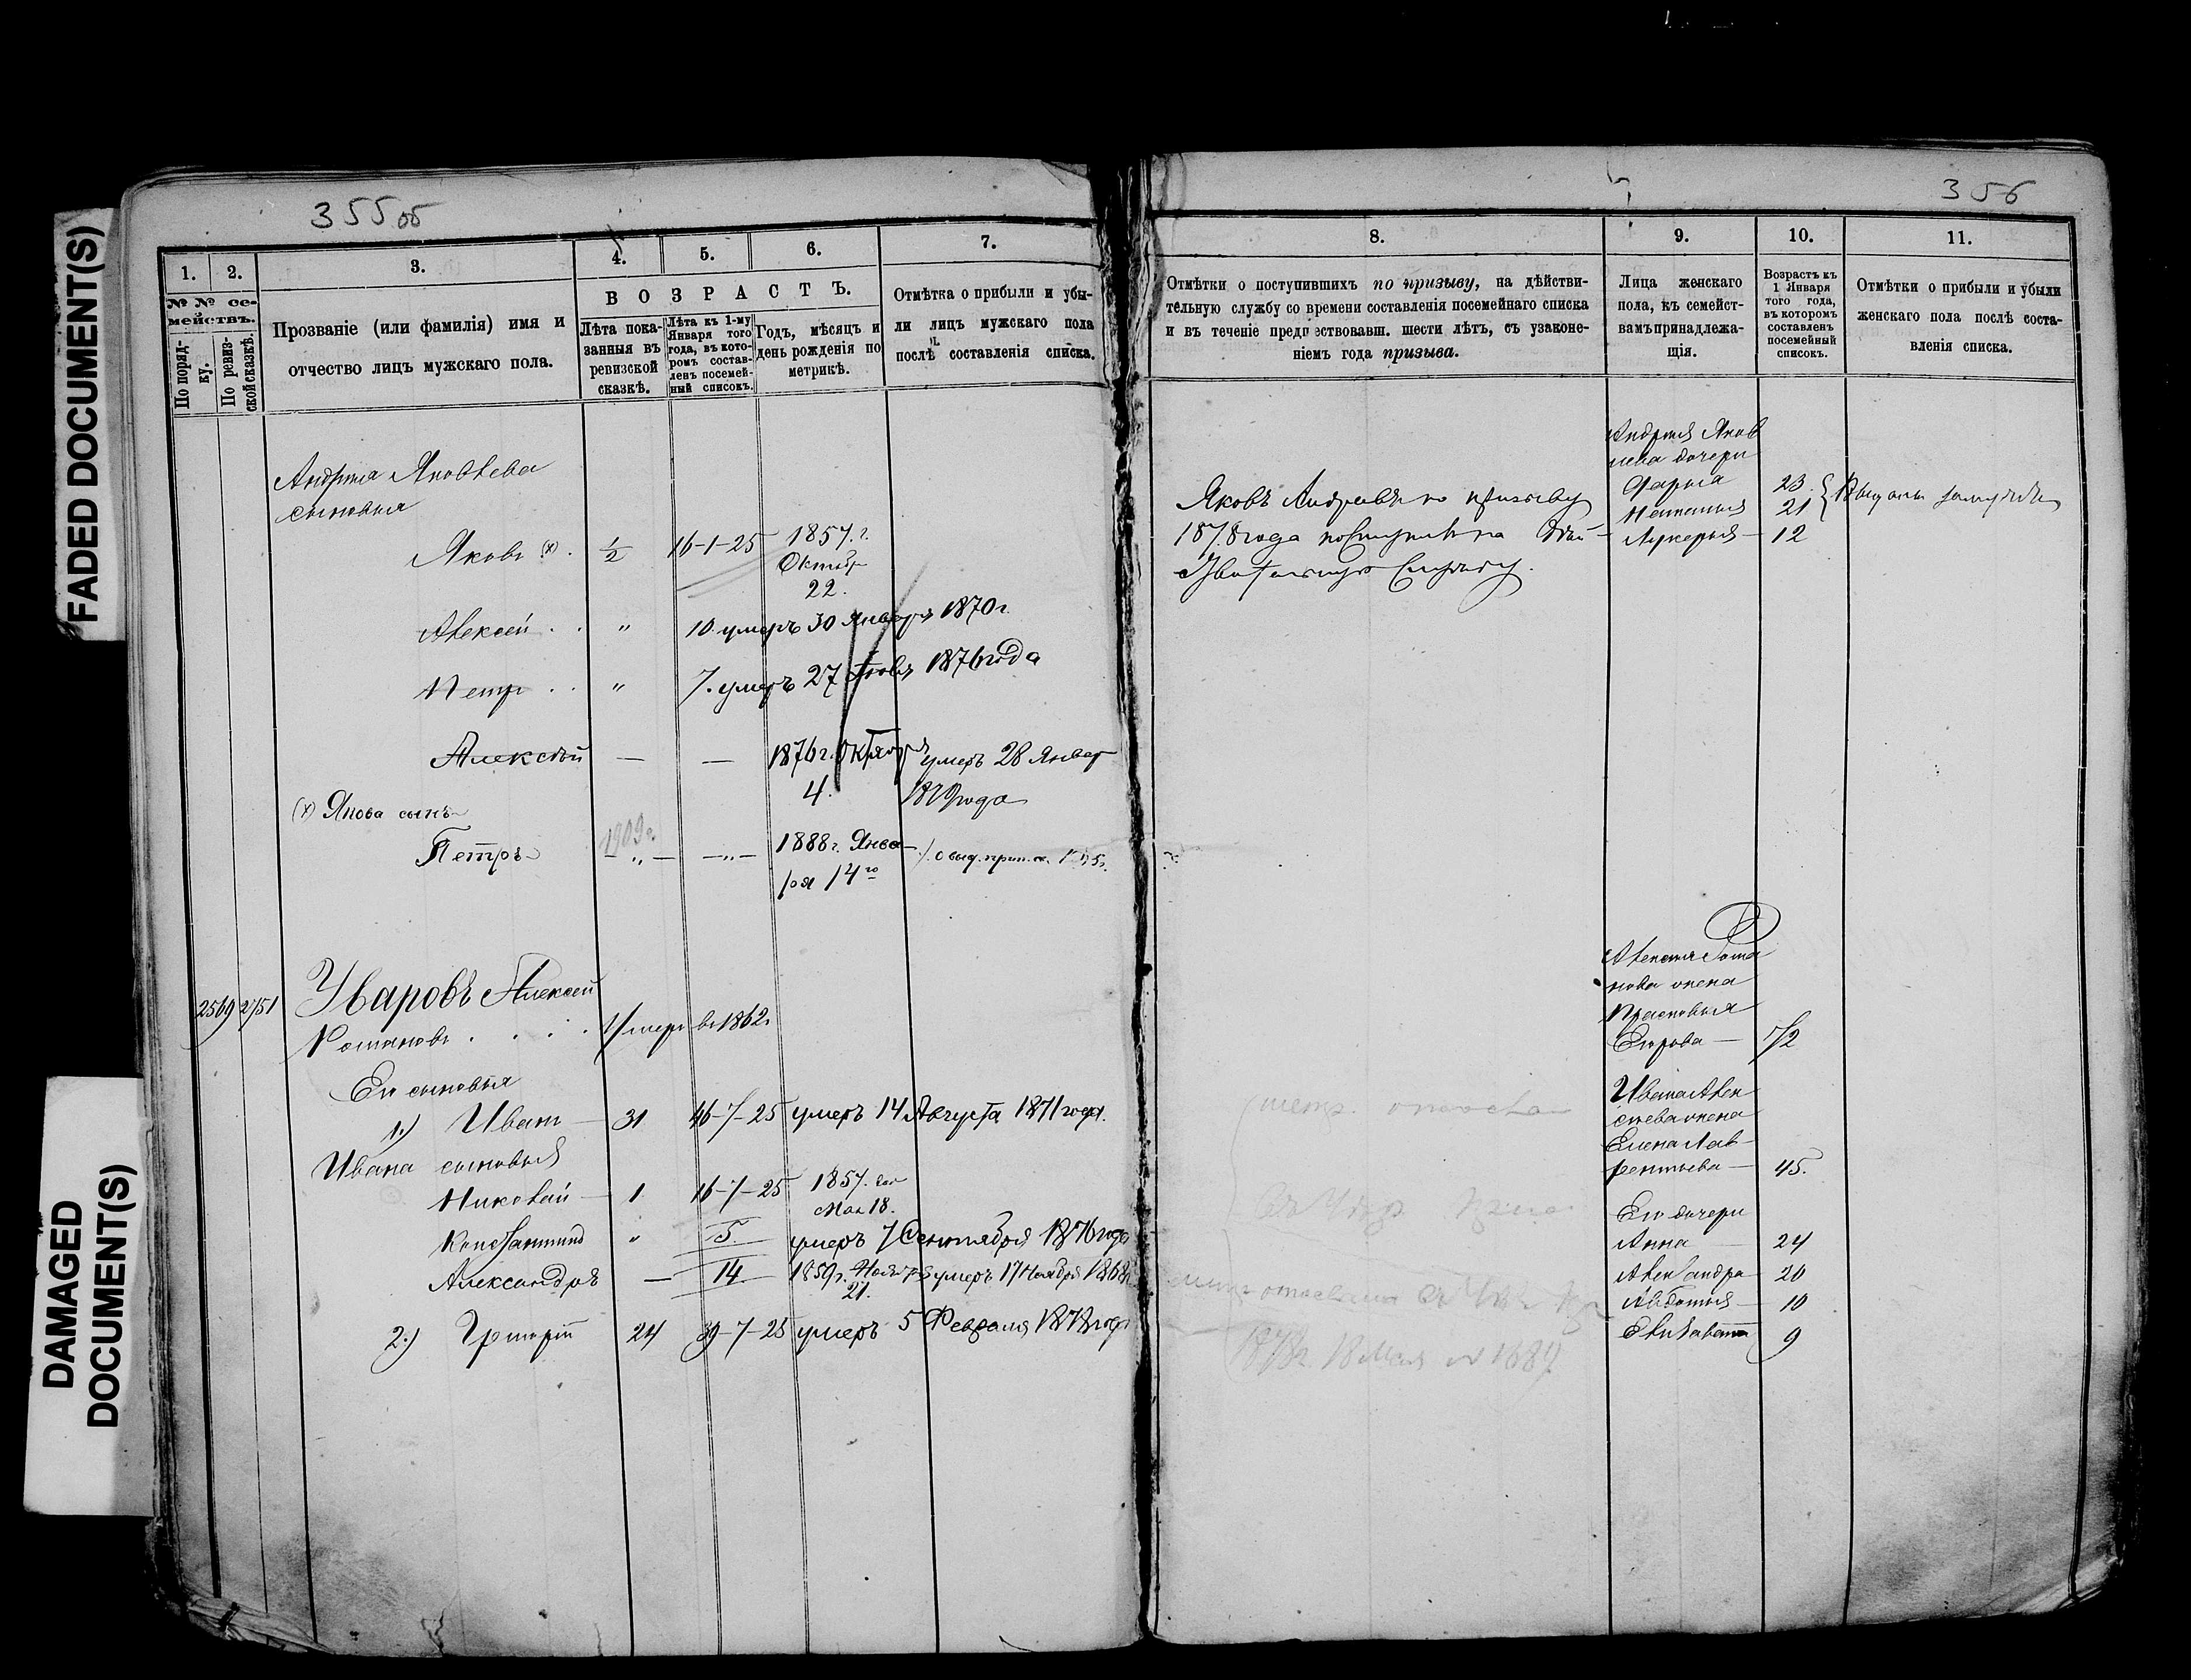 FADED DOCUMENT(S)
DAMAGED
DOCUMENT(S)
355об
1.
2.
3.
4.
5.
6.
7.
№ № се-
мействъ.
По поряд-
ку.
По ревиз-
ской сказкѣ.
Прозваніе (или фамилія) имя и
отчество лицъ мужскаго пола.
ВОЗРАСТЪ.
Лѣта пока-
занныя въ
ревизской
сказкѣ.
Лѣта къ 1-му
Января того
года, въ кото-
ромъ состав-
ленъ посемей-
ный списокъ.
Годъ, мѣсяцъ и
день рожденія по
метрикѣ.
Отмѣтка о прибыли и убы-
ли лицъ мужскаго пола
послѣ составленія списка.
Андрея Яковлева
сыновья
Яковъ (х) . 1/2 16-1-25 1857. г.
Октябр
22.
Алексей . . " 10. умеръ 30 Января 1870 г.
Петр . . " 7. умеръ 27 1876 года
Алексѣй — — 1876 г. Октяб умеръ 28 Январ
4. года
(х) Якова сынъ
1909 г.
Петръ — " — — " — 1888 г. Янва-
ря 14го
2569 2751 Уваровъ Алексей
Романовъ . . . . Умеръ въ 1862
Его сыновья
1.) Иванъ — 31 46-7-25 умеръ 14 Августа 1871 года.
Ивана сыновья
Николай — 1 16-7-25 1857. год
Мая 18.
Константинъ " 5. умеръ 7 Сентября 1876 года
Александръ — 14 1859 г. Ноября умеръ 17 Ноября 1868
21.
2.) Григорій 24 39-7-25 умеръ 5 Февраля 1878 год
356
8.
9.
10.
11.
Отмѣтки о поступившихъ по призыву, на дѣйстви-
тельную службу со времени составленія посемейнаго списка
и въ теченіе предшествовавш. шести лѣтъ, съ узаконе-
ніемъ года призыва.
Лица женскаго
пола, къ семейст-
вамъ принадлежа-
щія.
Возрастъ къ
1 Января
того года,
въ которомъ
составленъ
посемейный
списокъ.
Отмѣтки о прибыли и убыли
женскаго пола послѣ соста-
вленія списка.
Яковъ Андреевъ по призыву
1878 года поступилъ на дѣй-
ствительную службу.
Андрея Яков
лева дочери
Дарья 23
Наталья 21 Выданы замужъ
Лукерья — 12
Алексея Рома
нова жена
Прасковья
Егорова — 72
Ивана Алек
сеева жена
Елена Лав-
рентьева — 45.
Его дочери
Анна — 24
Александра 20
Авдотья — 10
Елизавета 9
18 Мая № 1687